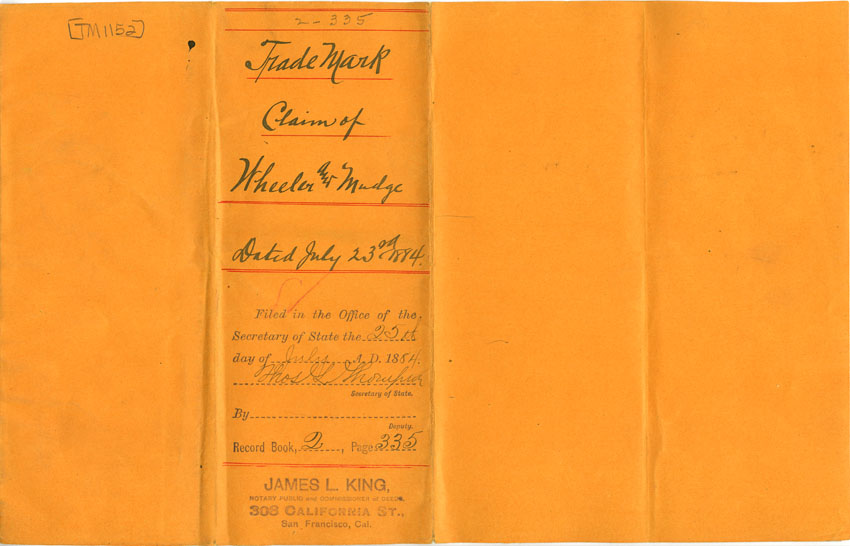 [TM1152]
2-335
Trade Mark
Claim of
Wheeler and Mudge
Dated July 23rd 1884.
Filed in the Office of the
Secretary of State the 25th
day of July A.D. 1884.
Thos L Thompson
Secretary of State.
By
Deputy.
Record Book, 2, Page 335
JAMES L. KING,
NOTARY PUBLIC and COMMISSIONER of DEEDS,
308 CALIFORNIA ST.,
San Francisco, Cal.